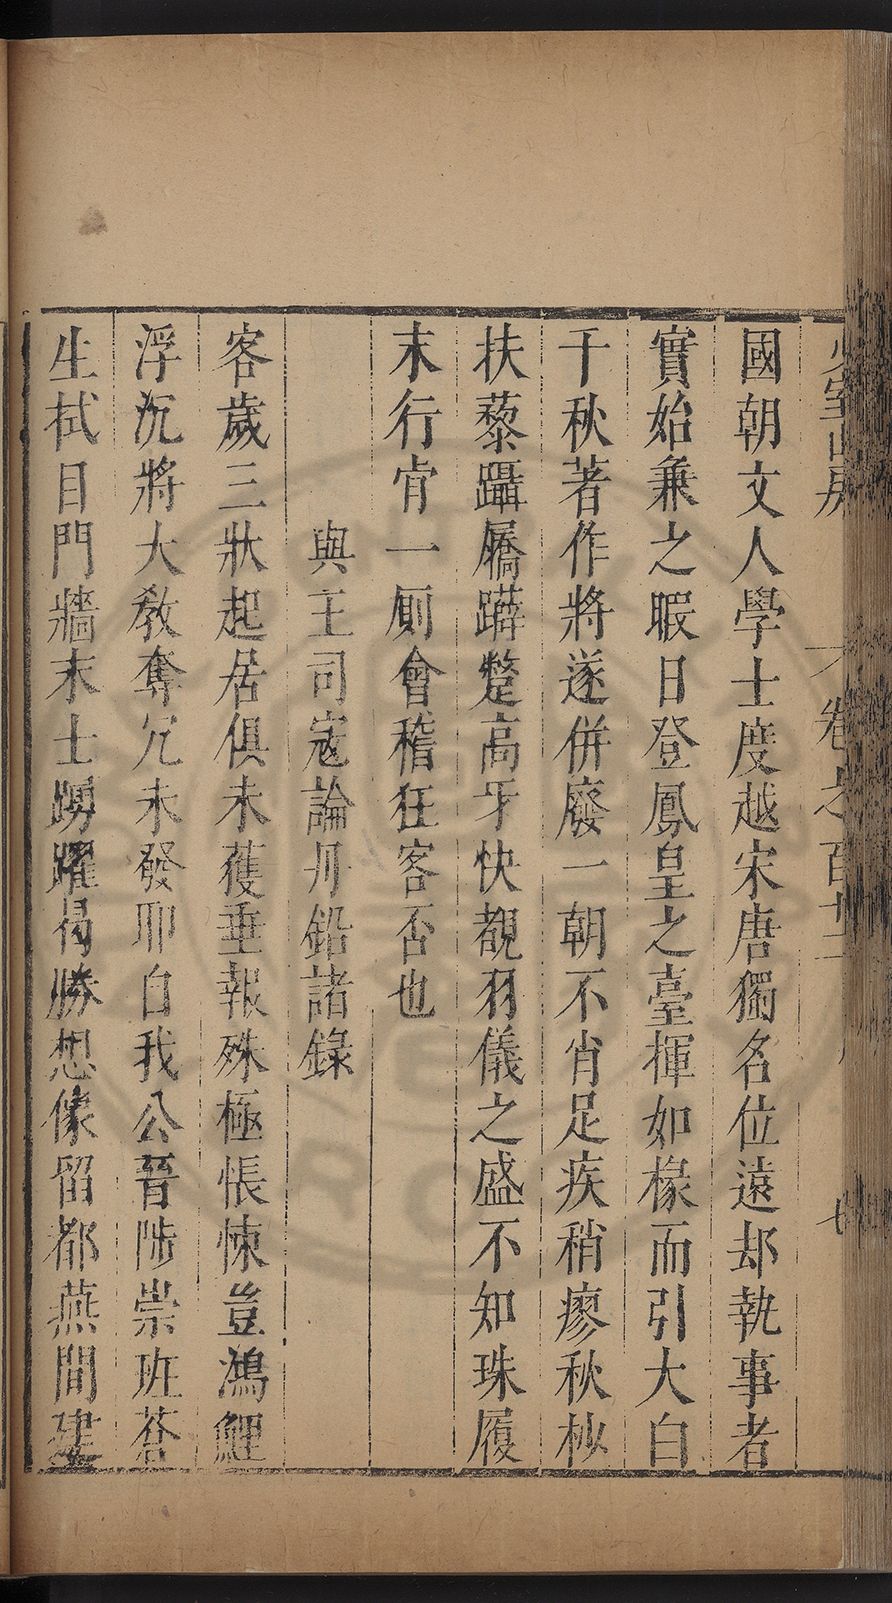 少室山房 卷之百十一 七
國朝文人學士度越宋唐獨名位遠却執事者
實始兼之暇日登鳳皇之臺揮如椽而引大白
千秋著作將遂併廢一朝不肖足疾稍瘳秋杪
扶藜躡屩躃躠高牙快覩羽儀之盛不知珠履
末行肯一厠會稽狂客否也
與王司寇論丹鉛諸錄
客歲三狀起居俱未蒦垂報殊極悵悚豈鴻鯉
浮沉將大教奪冗未發耶自我公晉陟崇班蒼
生拭目門牆末士踴躍曷勝想像留都燕間建